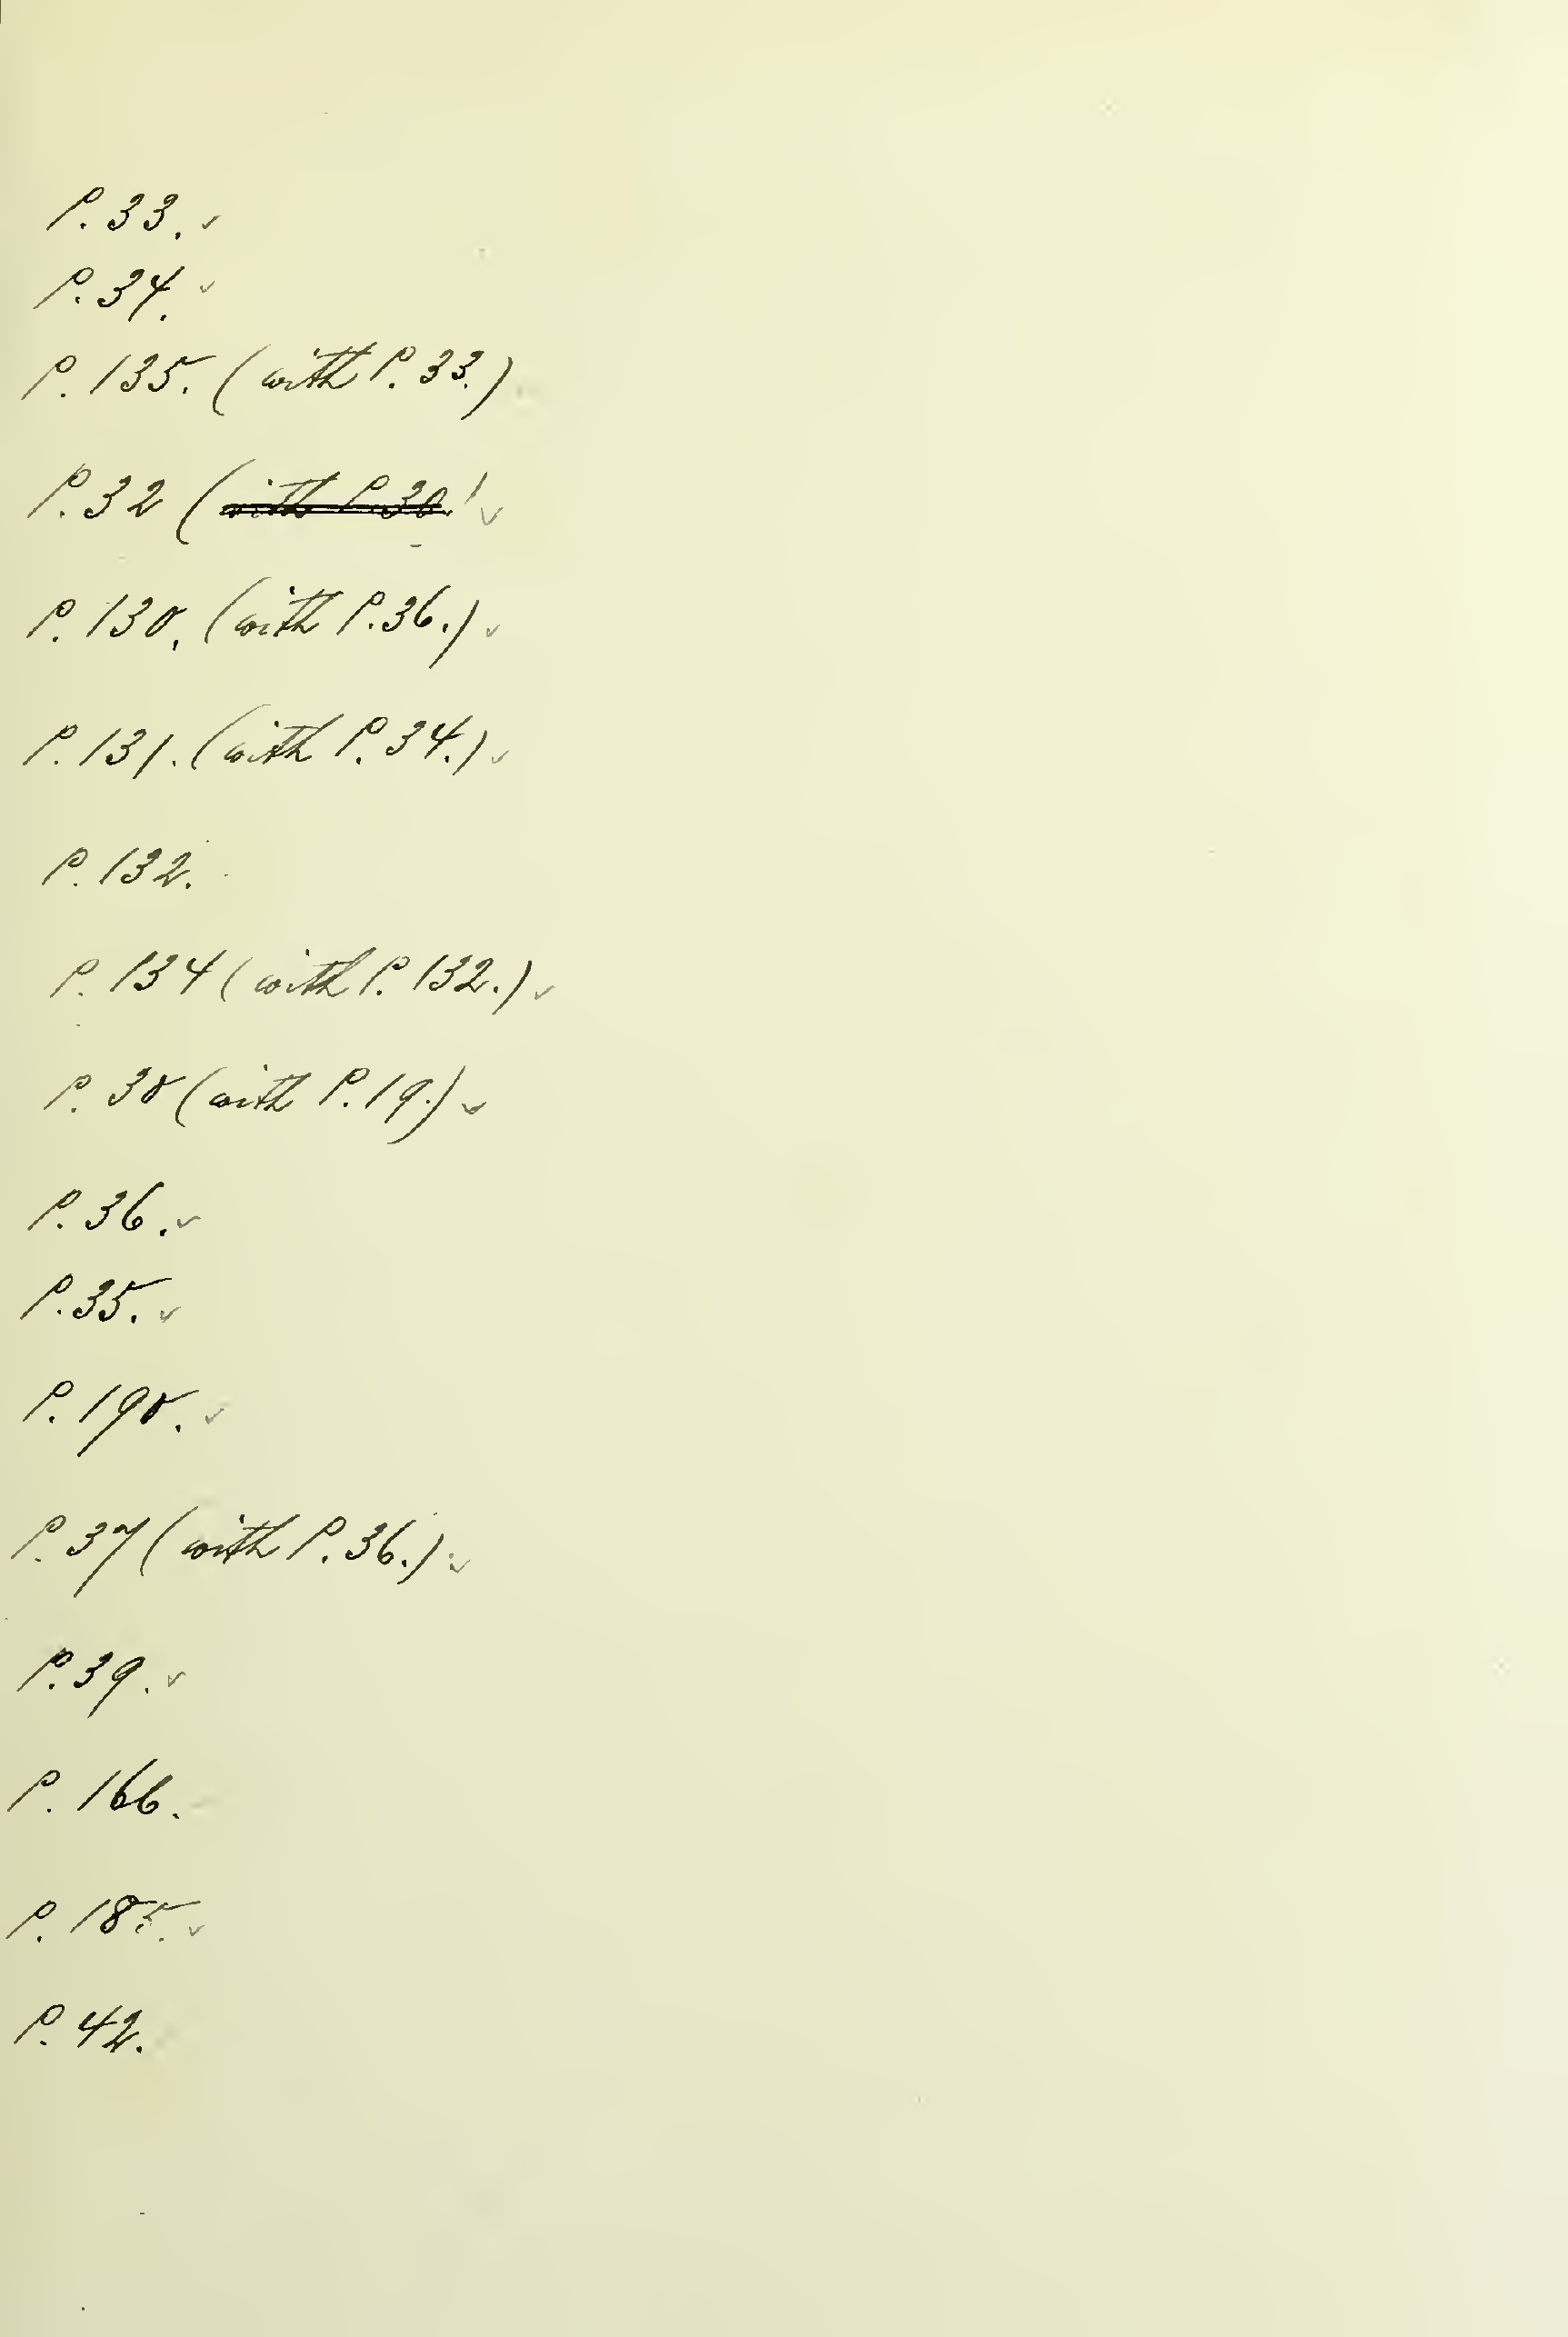 P. 33. ✓
P. 34. ✓
P. 135. (with P. 33.)
P. 32 (~~with P. 30.~~) ✓
P. 130. (with P. 36.) ✓
P. 131. (with P. 34.) ✓
P. 132.
P. 134 (with P. 132.) ✓
P. 38 (with P. 19.) ✓
P. 36. ✓
P. 35. ✓
P. 198. ✓
P. 37 (with P. 36.) ✓
P. 39. ✓
P. 166.
P. 185. ✓
P. 42.